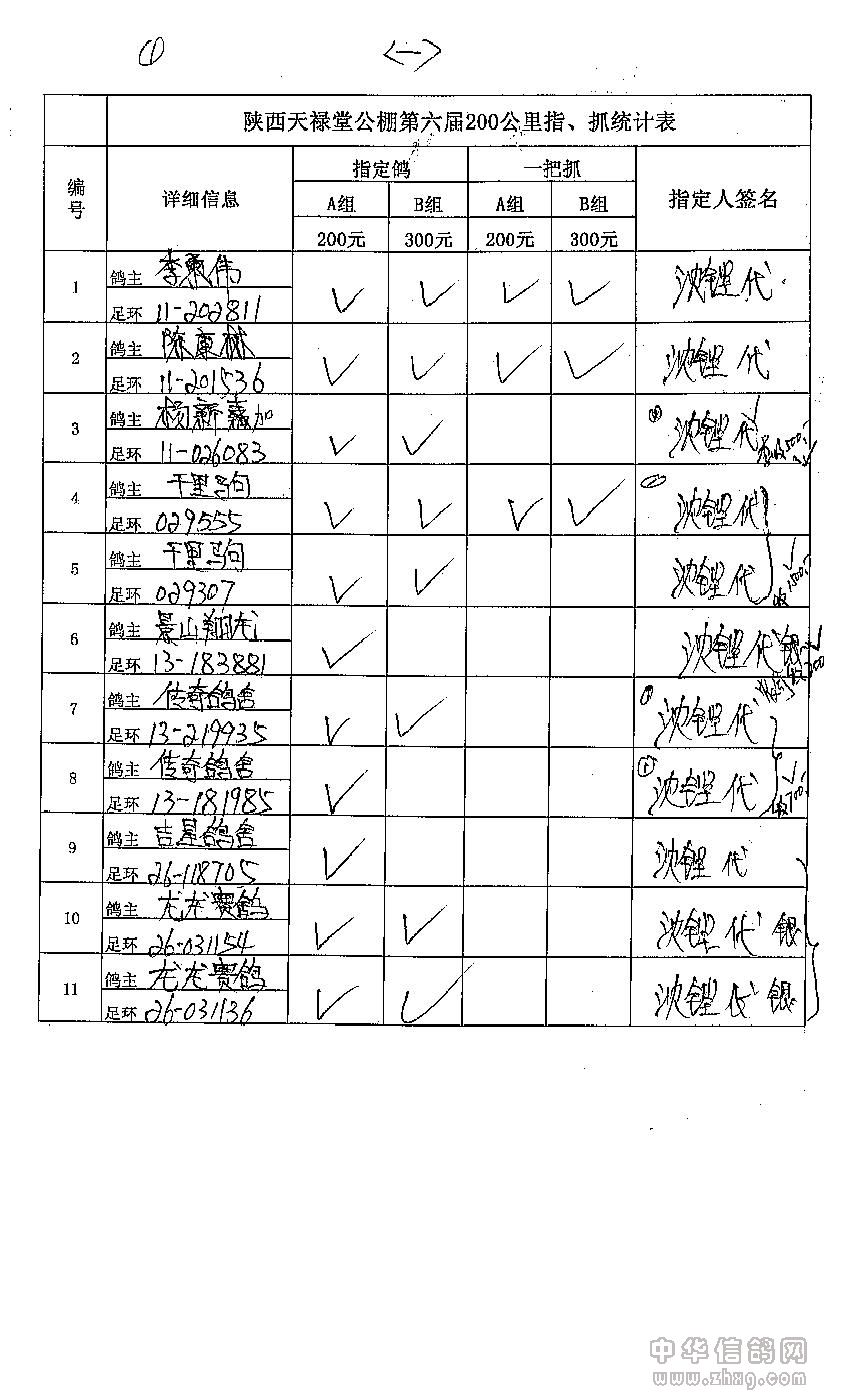 ① <一>
陕西天禄堂公棚第六届200公里指、抓统计表
编号 详细信息 指定鸽 一把抓 指定人签名
A组 B组 A组 B组
200元 300元 200元 300元
1 鸽主 李 伟 ✓ ✓ ✓ ✓ 代
足环 11-202811
2 鸽主 陈 林 ✓ ✓ ✓ ✓ 代
足环 11-201536
3 鸽主 杨新 加 ✓ ✓ 代
足环 11-026083
4 鸽主 千里马 ✓ ✓ ✓ ✓ 代
足环 029555
5 鸽主 千里马 ✓ ✓ 代
足环 029307
6 鸽主 景山翔龙 ✓ 代 银
足环 13-183881
7 鸽主 传奇鸽舍 ✓ ✓ 代
足环 13-219935
8 鸽主 传奇鸽舍 ✓ 代 收700
足环 13-181985
9 鸽主 吉星鸽舍 ✓ 代
足环 26-118705
10 鸽主 龙龙赛鸽 ✓ ✓ 代 银
足环 26-031154
11 鸽主 龙龙赛鸽 ✓ ✓ 代 银
足环 26-031136
中华信鸽网
www.zhxg.com